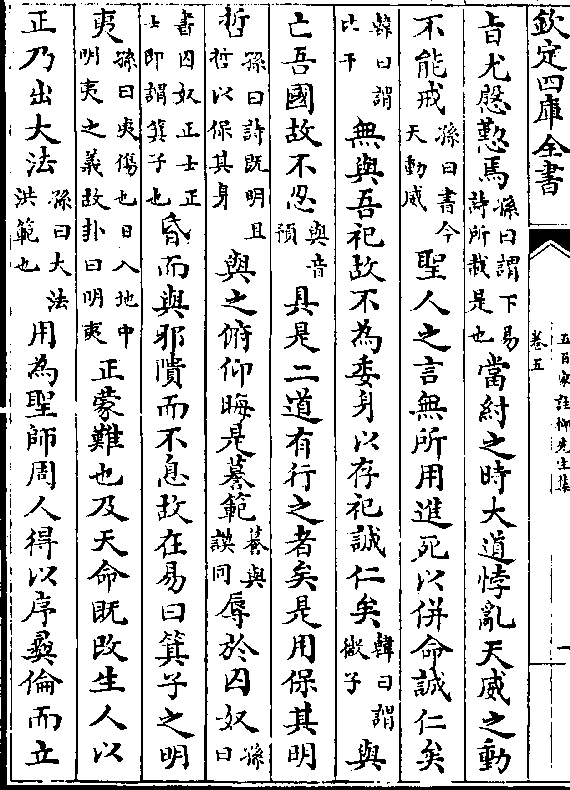 欽定四庫全書
五百家註柳先生集
卷五
一
㫖尤慇懃焉孫曰謂下易詩所載是也當紂之時大道悖亂天威之動
不能戒孫曰書今天動威聖人之言無所用進死以併命誠仁矣
韓曰謂比干無與吾祀故不為委身以存祀誠仁矣韓曰謂微子與
亡吾國故不忍與音預具是二道有行之者矣是用保其明
哲孫曰詩既明且哲以保其身與之俯仰晦是謩範謩與謨同辱於囚奴孫曰
書囚奴正士正士即謂箕子也昏而與邪隤而不息故在易曰箕子之明
夷孫曰夷傷也日入地中明夷之義故卦曰明夷正蒙難也及天命既改生人以
正乃出大法孫曰大法洪範也用為聖師周人得以序彛倫而立